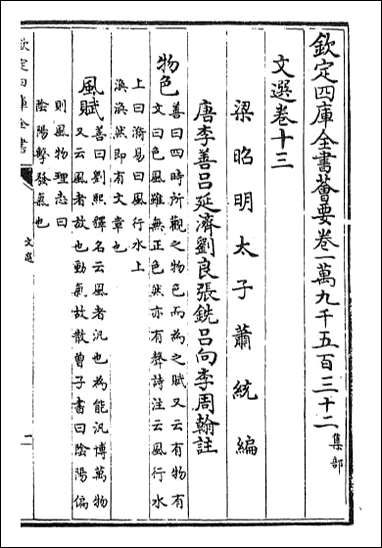 欽定四庫全書薈要卷一萬九千五百三十二 集部
文選卷十三
梁昭明太子蕭統編
唐李善呂延濟劉良張銑呂向李周翰註
物色 善曰四時所觀之物色而為之賦又云有物有
文曰色風雖無正色然亦有聲詩注云風行水
上曰漪易曰風行水上
渙渙然即有文章也
風賦 善曰劉熙釋名云風者汎也為能汎博萬物
又云風者放也動氣故散曾子書曰陰陽偏
則風物理志曰
陰陽擊發氣也
欽定四庫全書
文選
一